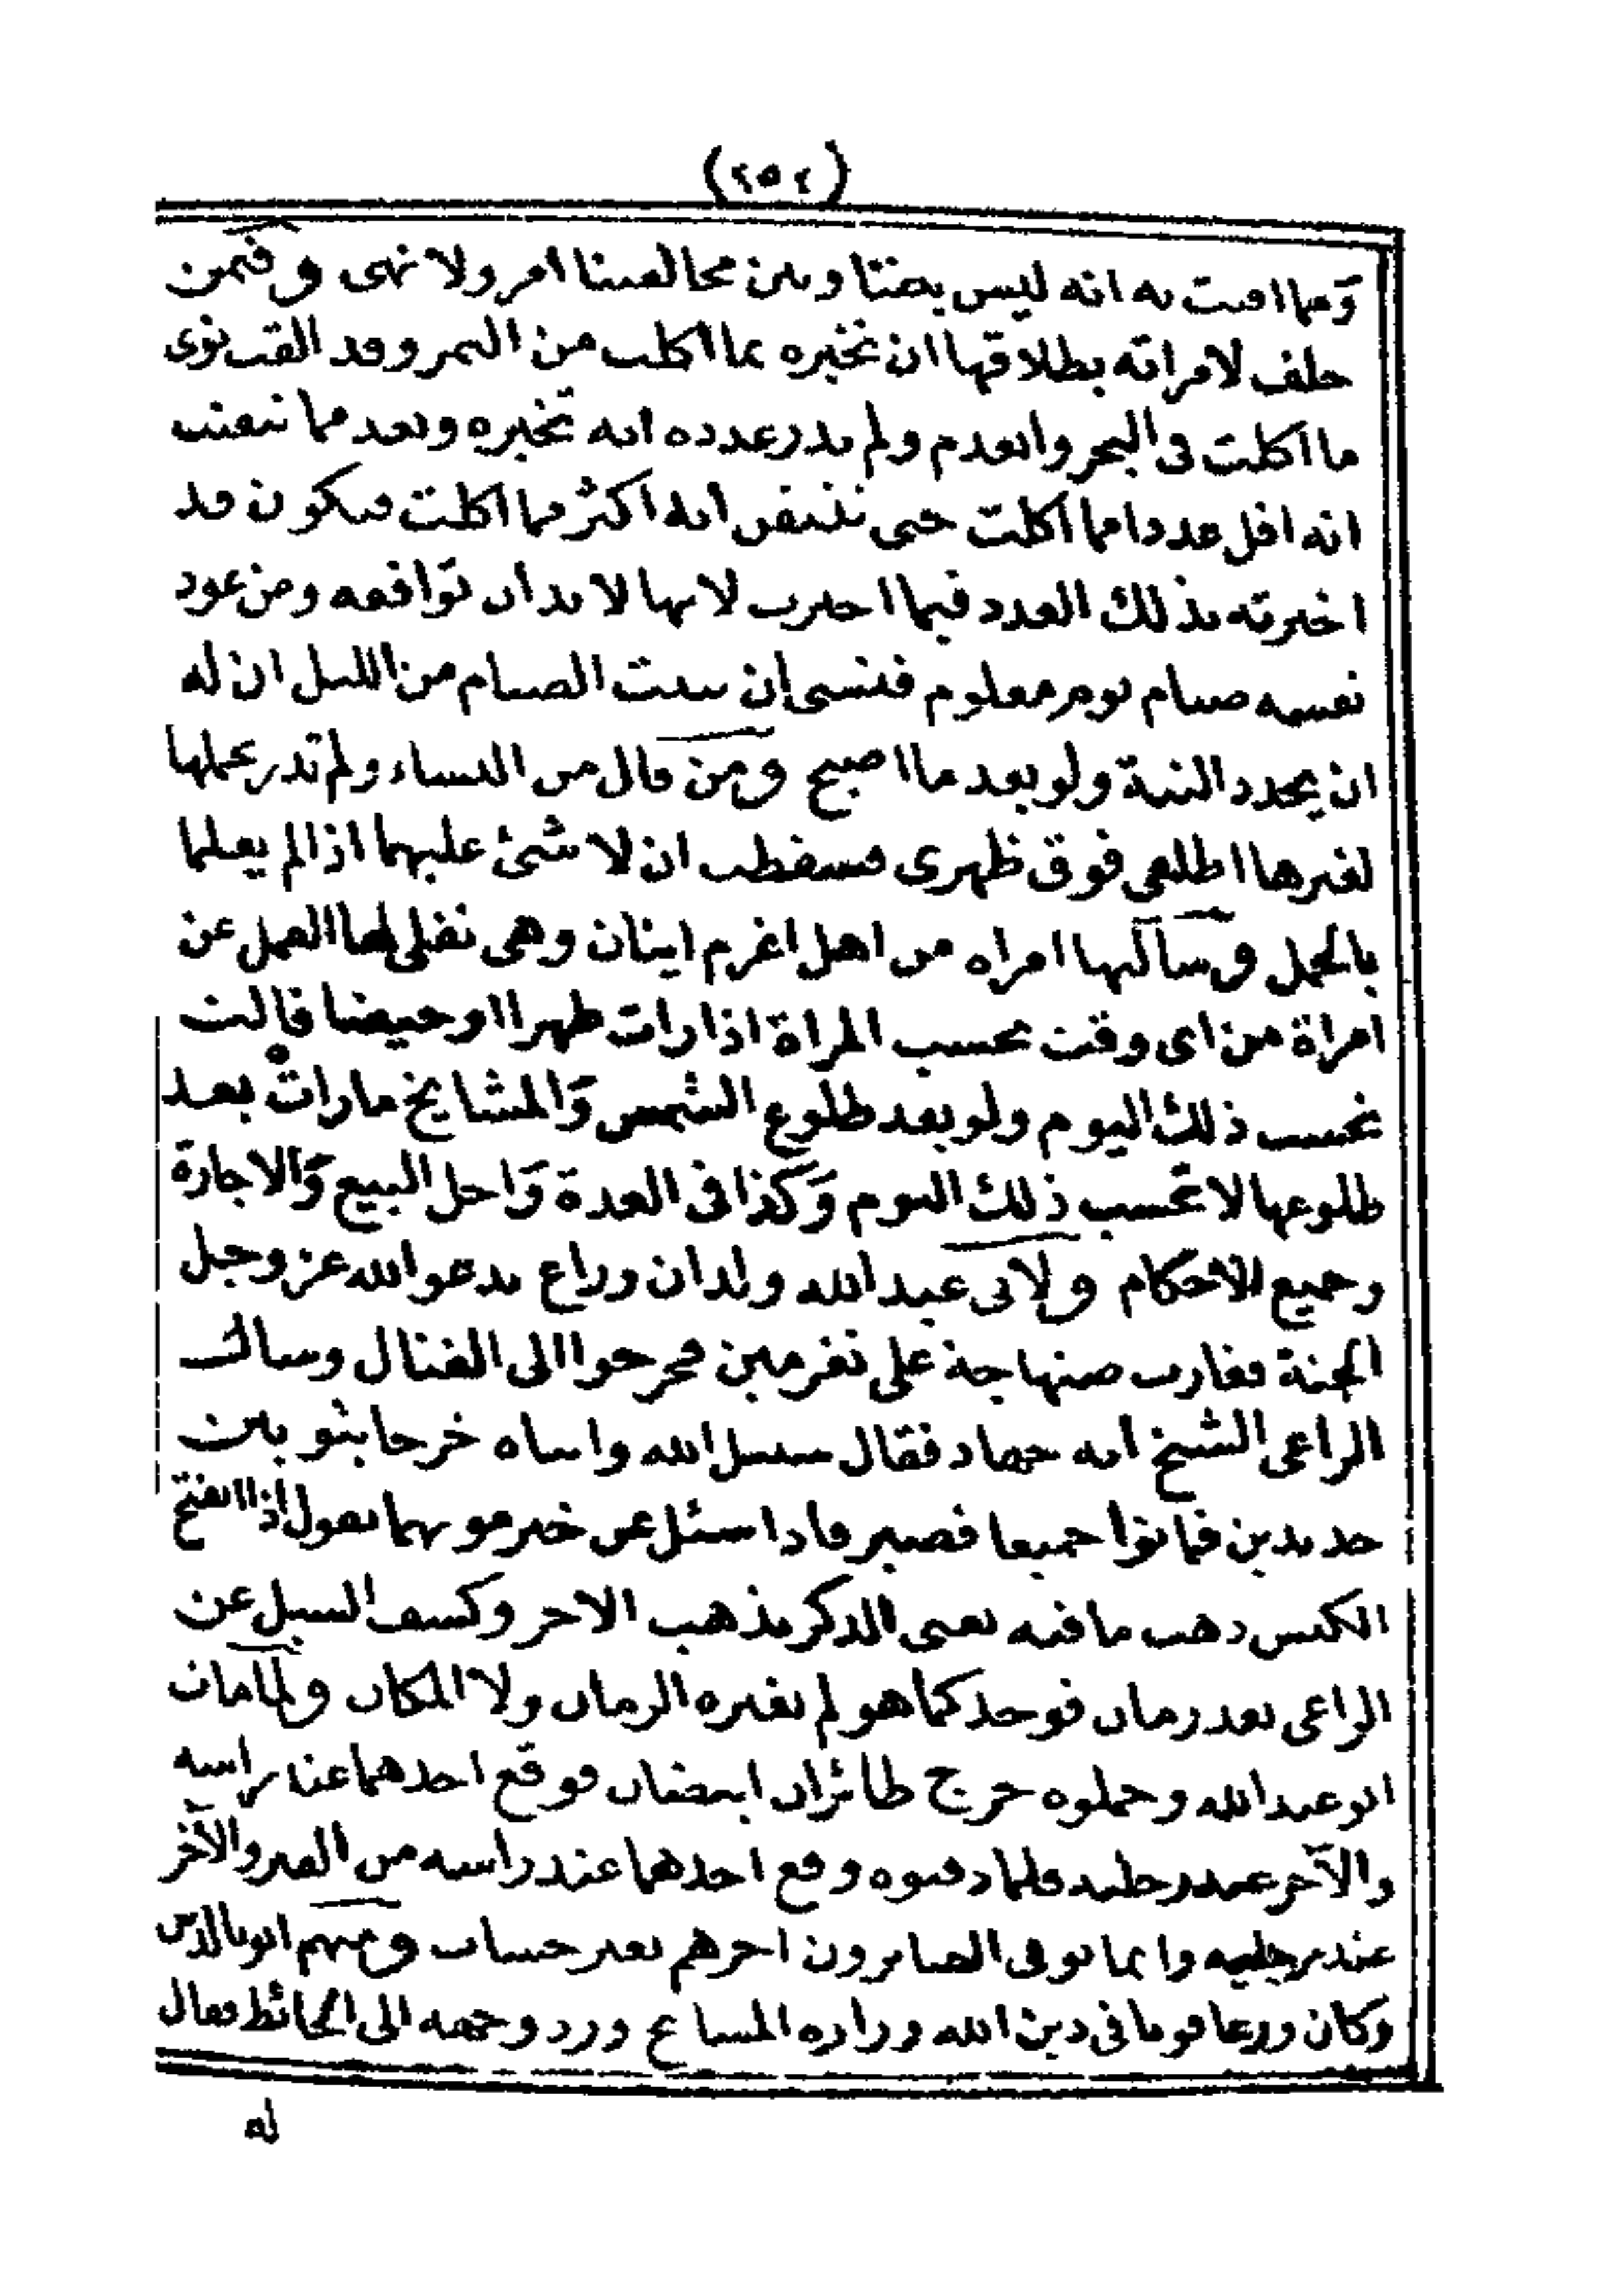 (٢٥٤)
ومما افتت به انه ليس بيننا وبين مخالفينا امر ولا نهى و فيمن
حلف لامراته بطلاقها ان تخبره بما اكلت من التمر وقد القت نوى
ما اكلت فى البحر وانعدم ولم يدر عدده انه تخبره وتعد مما تيقنت
انه اقل عددا مما اكلت حتى تتيقن انه اكثر مما اكلت فيكون قد
اخبرته بذلك العدد فيما اخبرت لانها لا بد ان توافقه ومن عود
نفسه صيام يوم معلوم فنسى ان يبيت الصيام من الليل ان له
ان يجدد النية ولو بعد ما اصبح ومن قال من النساء ولم تدر بحملها
لغيرها اطلعى فوق ظهرى فسقطت ان لا شئ عليهما اذا لم يعلما
بالحمل وسالتها امراه من اهل اغرم اينان وهى تفلى لها القمل عن
امراة من اى وقت تحسب المراة اذا رات طهرا او حيضا قالت
تحسب ذلك اليوم ولو بعد طلوع الشمس والمشايخ ما رات بعد
طلوعها لا تحسب ذلك اليوم وكذا فى العدة واجل البيع والاجارة
وجميع الاحكام ولابى عبد الله ولدان وراع يدعو الله عز وجل
الجنة فغارت صنهاجة على تغرمين فخرجوا الى القتال وسال
الراعى الشيخ انه جهاد فقال سبيل الله وابناه خرجا بثوبين
جديدين فماتوا جميعا فصبر فاذا سئل عن خبر موتهما يقول اذا انفتح
الكيس ذهب ما فيه يعنى الذكر يذهب الاجر وكشف السيل عن
الراعى بعد زمان فوجد كما هو لم يغيره الزمان ولا المكان ولما مات
ابو عبد الله وحملوه خرج طائران ابيضان فوقع احدهما عند راسه
والآخر عند رجليه فلما دفنوه وقع احدهما عند راسه من القبر والآخر
عند رجليه وانما يوفى الصابرون اجرهم بغير حساب ومنهم
وكان ورعا قويا فى دين الله وزاره المشايخ ورد وجهه الى الحائط فقال
له